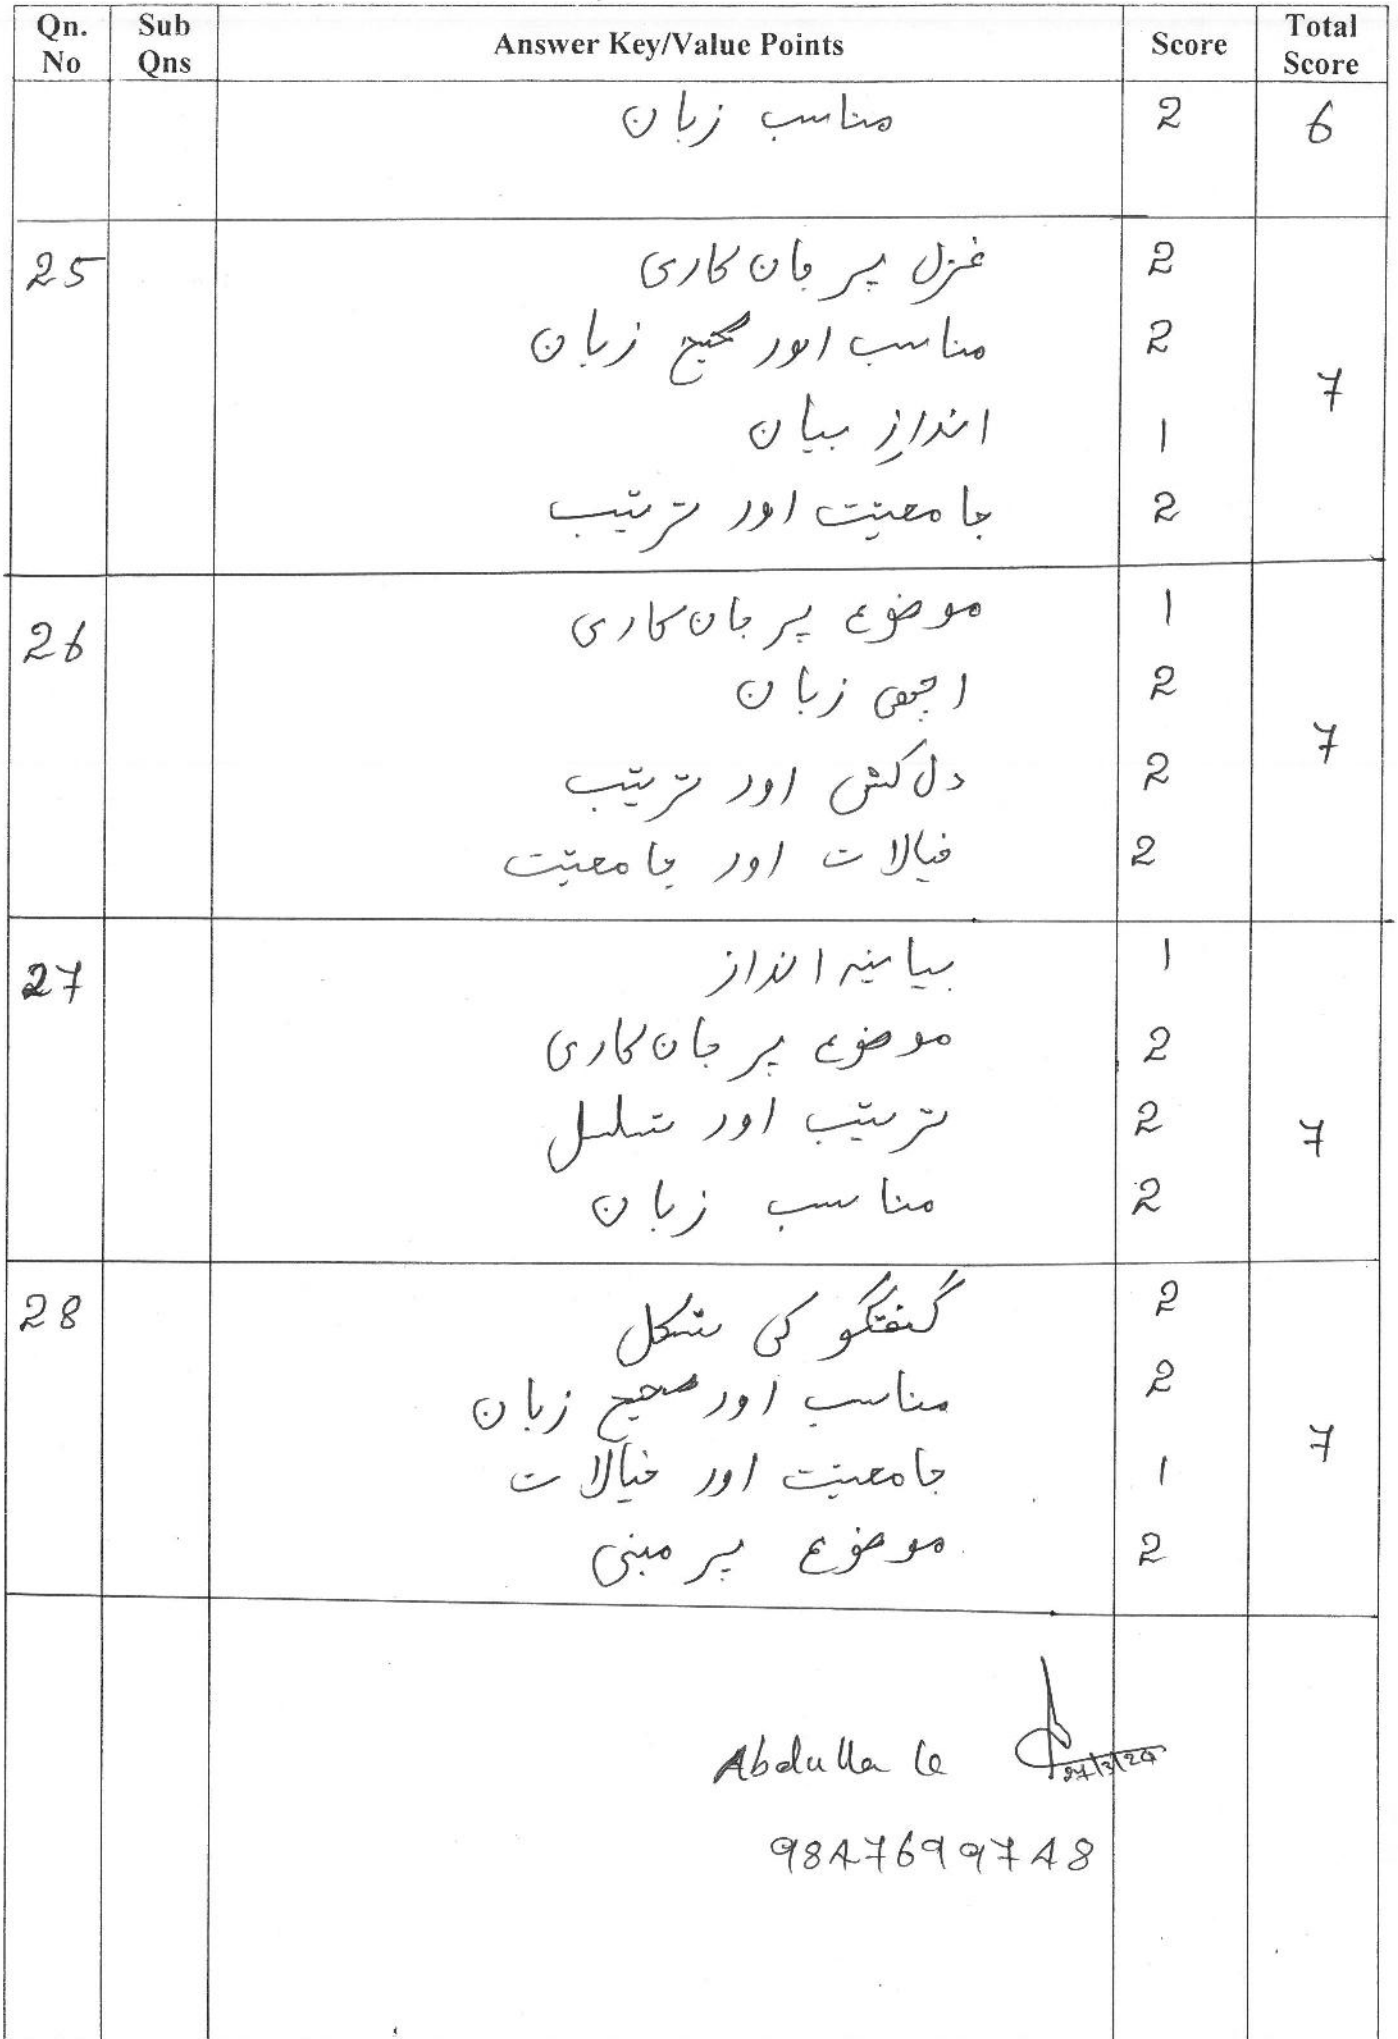 Qn. No Sub Qns Answer Key/Value Points Score Total Score
مناسب زبان 2 6
25 غزل پر جان کاری 2
مناسب اور صحیح زبان 2
7
اندازِ بیان 1
جامعیّت اور ترتیب 2
26 موضوع پر جان کاری 1
اچھی زبان 2
7
دل کش اور ترتیب 2
خیالات اور جامعیّت 2
27 بیانیہ انداز 1
موضوع پر جان کاری 2
ترتیب اور تسلسل 2 7
مناسب زبان 2
28 گفتگو کی شکل 2
مناسب اور صحیح زبان 2
7
جامعیّت اور خیالات 1
موضوع پر مبنی 2
Abdulla
9847699748